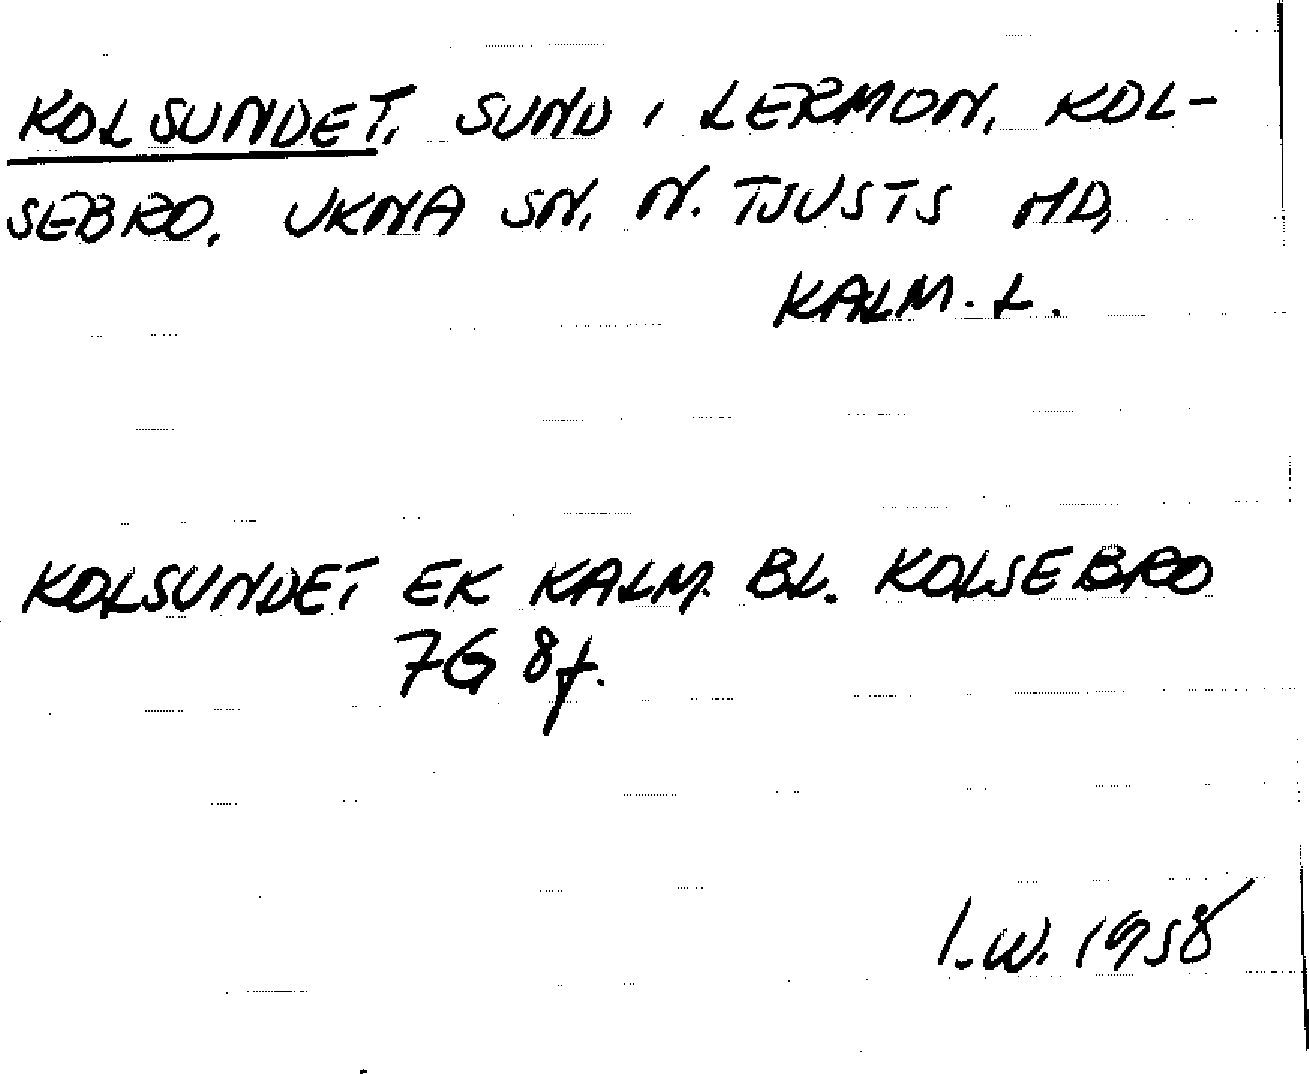 KOLSUNDET, SUND I LERMON, KOL-
SEBRO, UKNA SN, N. TJUSTS HD,
KALM. L.
KOLSUNDET EK KALM. BL. KOLSEBRO
7G 8f.
I.W. 1958